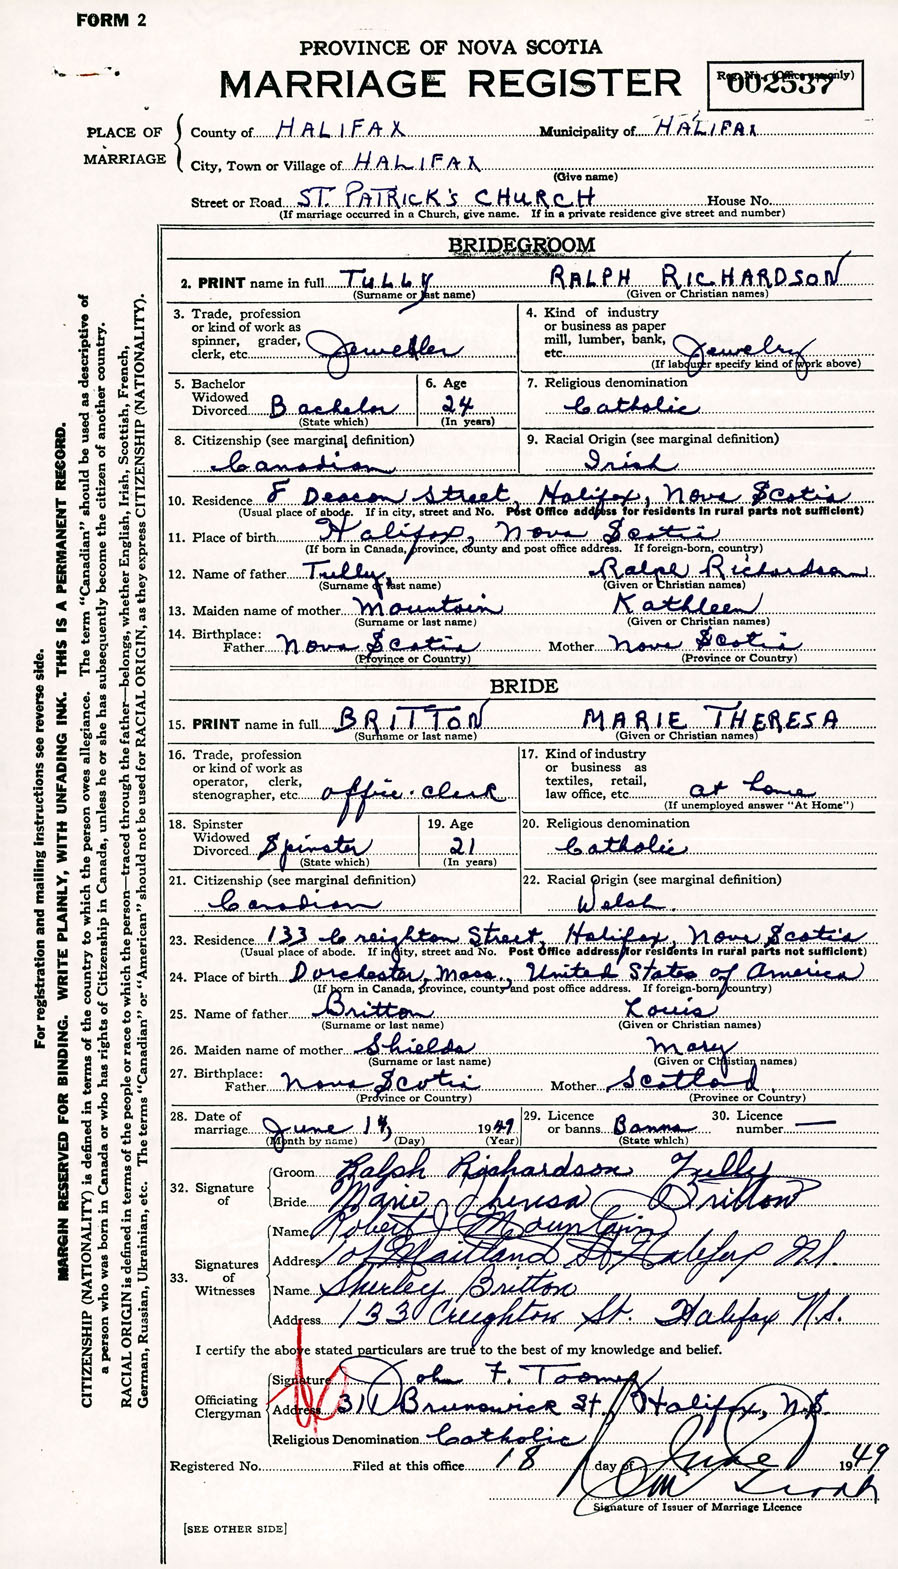 FORM 2
PROVINCE OF NOVA SCOTIA
MARRIAGE REGISTER
Reg. No. (Office use only)
002537
PLACE OF MARRIAGE
County of HALIFAX Municipality of HALIFAX
City, Town or Village of HALIFAX
(Give name)
Street or Road ST. PATRICK'S CHURCH House No.
(If marriage occurred in a Church, give name. If in a private residence give street and number)
BRIDEGROOM
2. PRINT name in full TULLY RALPH RICHARDSON
(Surname or last name) (Given or Christian names)
3. Trade, profession or kind of work as spinner, grader, clerk, etc. Jeweller
4. Kind of industry or business as paper mill, lumber, bank, etc. Jewelry
(If labourer specify kind of work above)
5. Bachelor Widowed Divorced Bachelor
(State which)
6. Age 24
(In years)
7. Religious denomination
Catholic
8. Citizenship (see marginal definition)
Canadian
9. Racial Origin (see marginal definition)
Irish
10. Residence 8 Deacon Street, Halifax, Nova Scotia
(Usual place of abode. If in city, street and No. Post Office address for residents in rural parts not sufficient)
11. Place of birth Halifax, Nova Scotia
(If born in Canada, province, county and post office address. If foreign-born, country)
12. Name of father Tully, Ralph Richardson
(Surname or last name) (Given or Christian names)
13. Maiden name of mother Mountain Kathleen
(Surname or last name) (Given or Christian names)
14. Birthplace:
Father Nova Scotia Mother Nova Scotia
(Province or Country) (Province or Country)
BRIDE
15. PRINT name in full BRITTON MARIE THERESA
(Surname or last name) (Given or Christian names)
16. Trade, profession or kind of work as operator, clerk, stenographer, etc. office-clerk
17. Kind of industry or business as textiles, retail, law office, etc. at home
(If unemployed answer "At Home")
18. Spinster Widowed Divorced Spinster
(State which)
19. Age 21
(In years)
20. Religious denomination
Catholic
21. Citizenship (see marginal definition)
Canadian
22. Racial Origin (see marginal definition)
Welsh
23. Residence 133 Creighton Street, Halifax, Nova Scotia
(Usual place of abode. If in city, street and No. Post Office address for residents in rural parts not sufficient)
24. Place of birth Dorchester, Mass., United States of America
(If born in Canada, province, county and post office address. If foreign-born, country)
25. Name of father Britton Louis
(Surname or last name) (Given or Christian names)
26. Maiden name of mother Shields Mary
(Surname or last name) (Given or Christian names)
27. Birthplace:
Father Nova Scotia Mother Scotland
(Province or Country) (Province or Country)
28. Date of marriage June 18, 1949
(Month by name) (Day) (Year)
29. Licence or banns Banns
(State which)
30. Licence number —
32. Signature of
Groom Ralph Richardson Tully
Bride Marie Theresa Britton
33. Signatures of Witnesses
Name Robert J Mountain
Address Maitland St Halifax N.S.
Name Shirley Britton
Address 133 Creighton St. Halifax N.S.
I certify the above stated particulars are true to the best of my knowledge and belief.
Officiating Clergyman
Signature John F. Toomey
Address 311 Brunswick St., Halifax, N.S.
Religious Denomination Catholic
Registered No. Filed at this office 18 day of June 1949
Signature of Issuer of Marriage Licence
[SEE OTHER SIDE]
For registration and mailing instructions see reverse side.
MARGIN RESERVED FOR BINDING. WRITE PLAINLY, WITH UNFADING INK. THIS IS A PERMANENT RECORD.
CITIZENSHIP (NATIONALITY) is defined in terms of the country to which the person owes allegiance. The term "Canadian" should be used as descriptive of
a person who was born in Canada or who has rights of Citizenship in Canada, unless he or she has subsequently become the citizen of another country.
RACIAL ORIGIN is defined in terms of the people or race to which the person—traced through the father—belongs, whether English, Irish, Scottish, French,
German, Russian, Ukrainian, etc. The terms "Canadian" or "American" should not be used for RACIAL ORIGIN, as they express CITIZENSHIP (NATIONALITY).